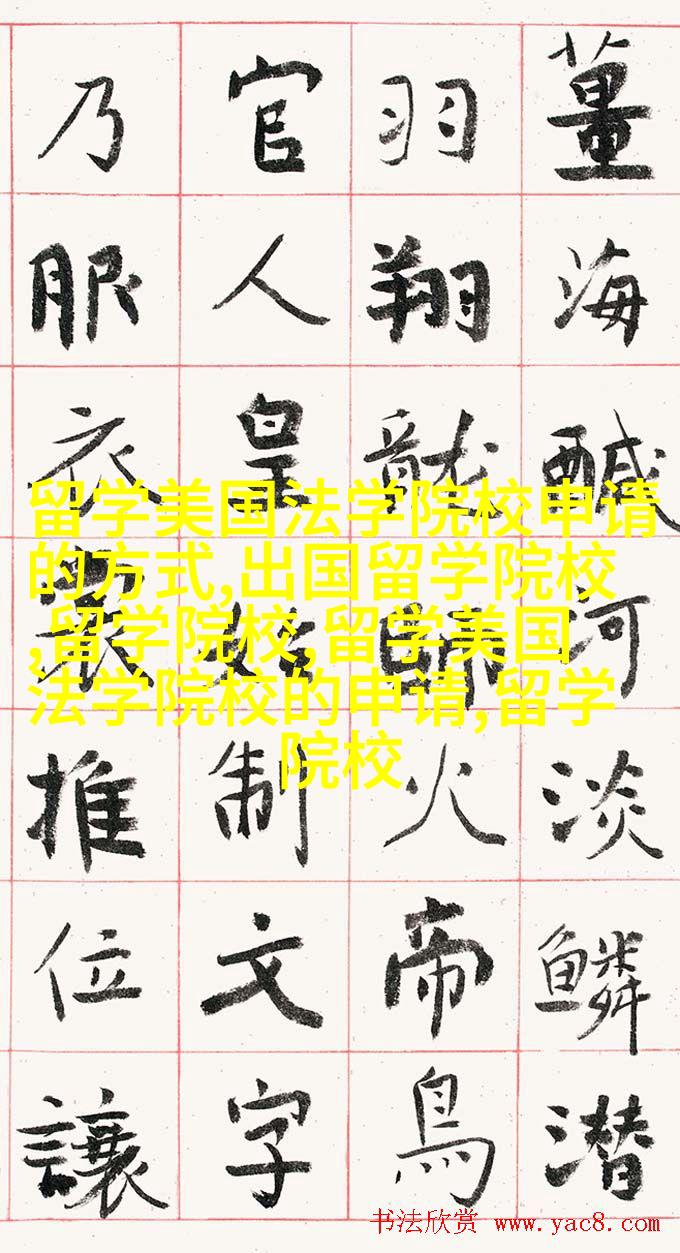 薑海醎河淡鳞潜
羽翔龍師火帝鳥
官人皇始制文字
乃服衣裳推位讓
留学美国法学院校申请
的方式,出国留学院校
,留学院校,留学美国
法学院校的申请,留学
院校
书法欣赏 www.yac8.com